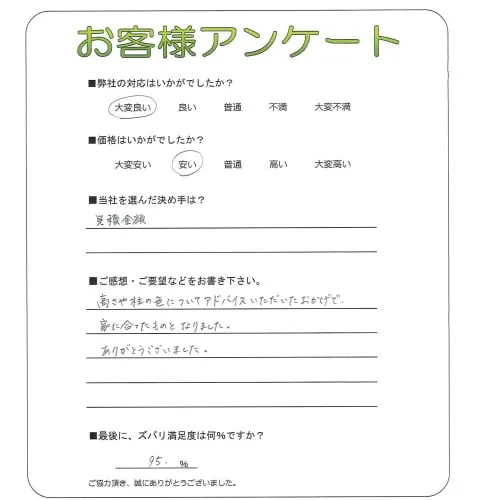 お客様アンケート
■弊社の対応はいかがでしたか？
大変良い 良い 普通 不満 大変不満
■価格はいかがでしたか？
大変安い 安い 普通 高い 大変高い
■当社を選んだ決め手は？
見積金額
■ご感想・ご要望などをお書き下さい。
高さや柱の色についてアドバイスいただいたおかげで、
家に合ったものとなりました。
ありがとうございました。
■最後に、ズバリ満足度は何%ですか？
95. %
ご協力頂き、誠にありがとうございました。